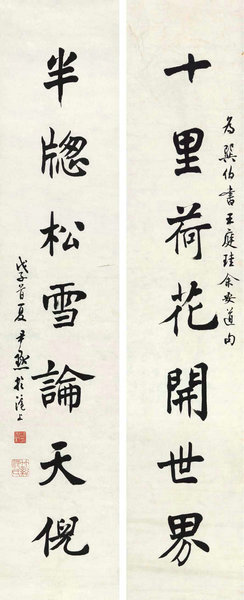 十里荷花開世界
為巽伯書王庭珪余安道句
半牕松雪論天倪
戊子首夏尹默於滬上